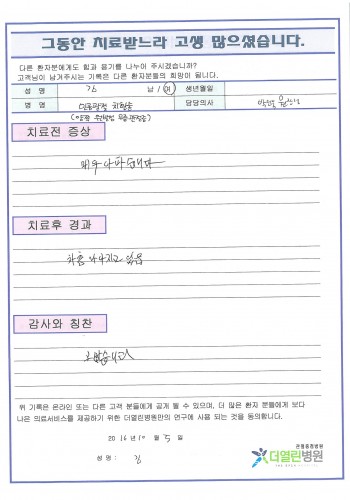 그동안 치료받느라 고생 많으셨습니다.
다른 환자분에게도 힘과 용기를 나누어 주시겠습니까?
고객님이 남겨주시는 기록은 다른 환자분들의 희망이 됩니다.
성 명 김 남 / 여 생년월일
병 명 담당의사
치료전 증상
매우 나빴습니다
치료후 경과
차츰 나아지고 있음
감사와 칭찬
고맙습니다
위 기록은 온라인 또는 다른 고객 분들에게 공개 될 수 있으며, 더 많은 환자 분들에게 보다
나은 의료서비스를 제공하기 위한 더열린병원만의 연구에 사용 되는 것을 동의합니다.
2016년 10월 5일
성명 : 김
관절중점병원
더열린병원